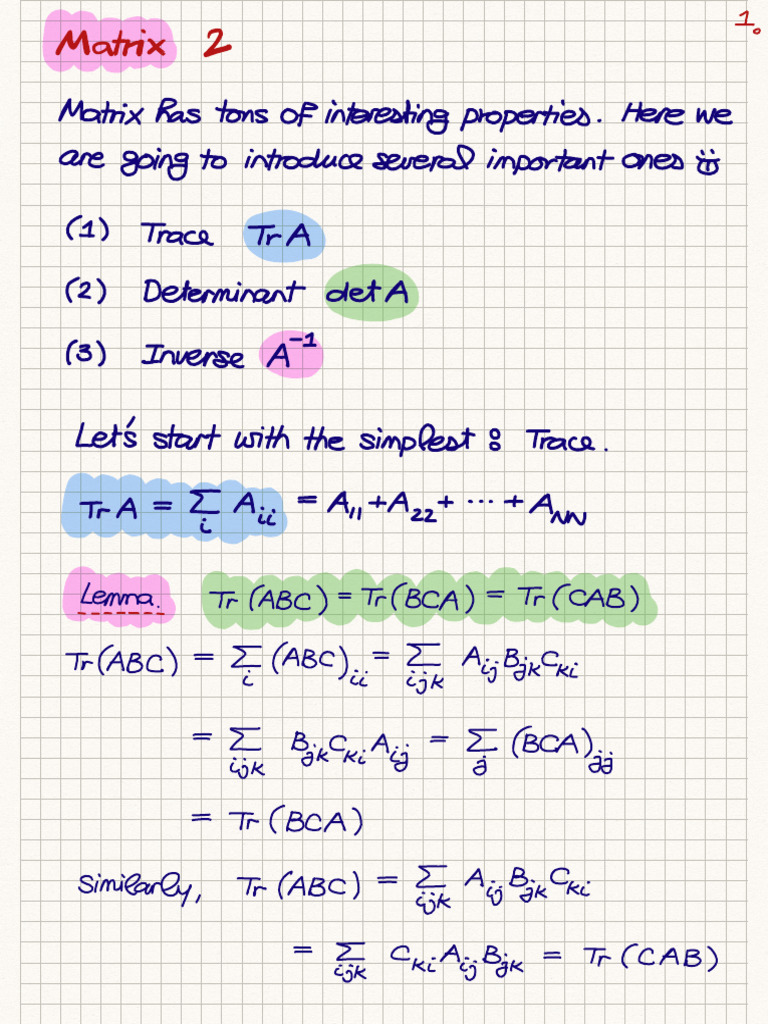 Matrix 2
1.
Matrix has tons of interesting properties. Here we
are going to introduce several important ones
(1) Trace Tr A
(2) Determinant det A
(3) Inverse A⁻¹
Let's start with the simplest : Trace.
Tr A = Σ_i A_ii = A_11 + A_22 + ⋯ + A_NN
Lemma. Tr(ABC) = Tr(BCA) = Tr(CAB)
Tr(ABC) = Σ_i (ABC)_ii = Σ_ijk A_ij B_jk C_ki
= Σ_ijk B_jk C_ki A_ij = Σ_j (BCA)_jj
= Tr(BCA)
Similarly, Tr(ABC) = Σ_ijk A_ij B_jk C_ki
= Σ_ijk C_ki A_ij B_jk = Tr(CAB)